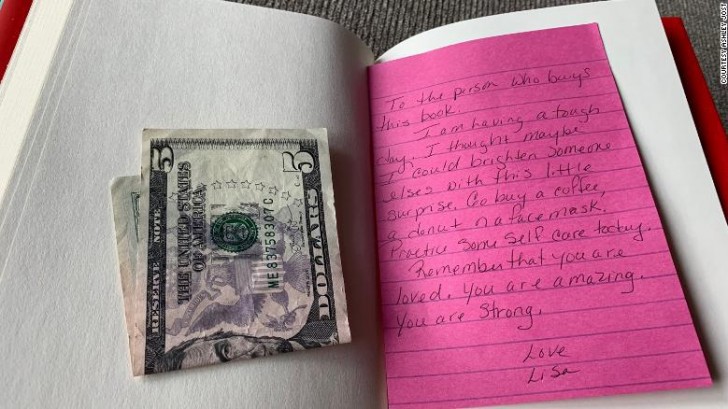 To the person who buys
this book.
I am having a tough
day. I thought maybe
I could brighten someone
elses with this little
surprise. Go buy a coffee,
a donut or a face mask.
Practice some self care today.
Remember that you are
loved. You are amazing.
You are strong.
Love
Lisa
RESERVE NOTE
5
5
THE UNITED STATES
OF AMERICA
ME 83758307 C
DOLLARS
COURTESY ASHLEY JOST